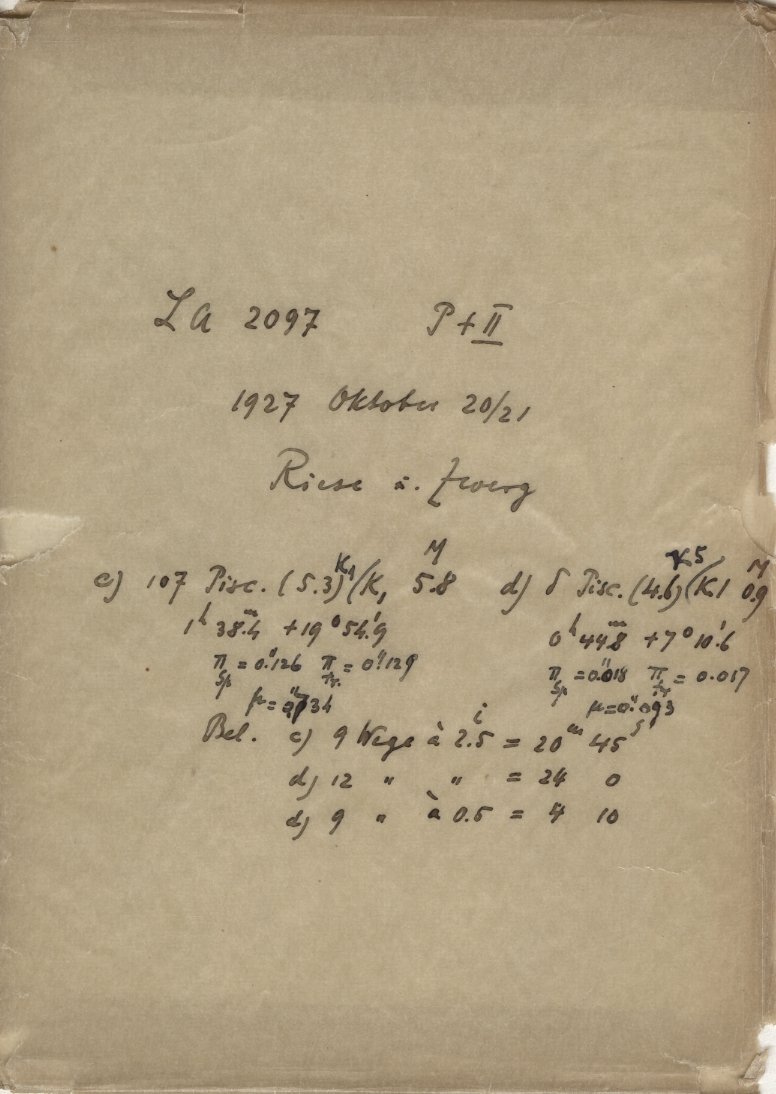 LA 2097 P + II
1927 Oktober 20/21
Riese u. Zwerg
c) 107 Pisc. (5.3) K1 (K1 M 5.8 d) δ Pisc. (4.6) K5 (K1 M 0.9
1h 38m.4 +19° 54'.9 0h 44m.8 +7° 10'.6
π sp = 0".126 π tr. = 0".129 π sp = 0".018 π tr = 0.017
μ = 0".734 μ = 0".093
Bel. c) 9 Wege à 2.5 i = 20m 45s
d) 12 " " = 24 0
d) 9 " à 0.5 = 4 10